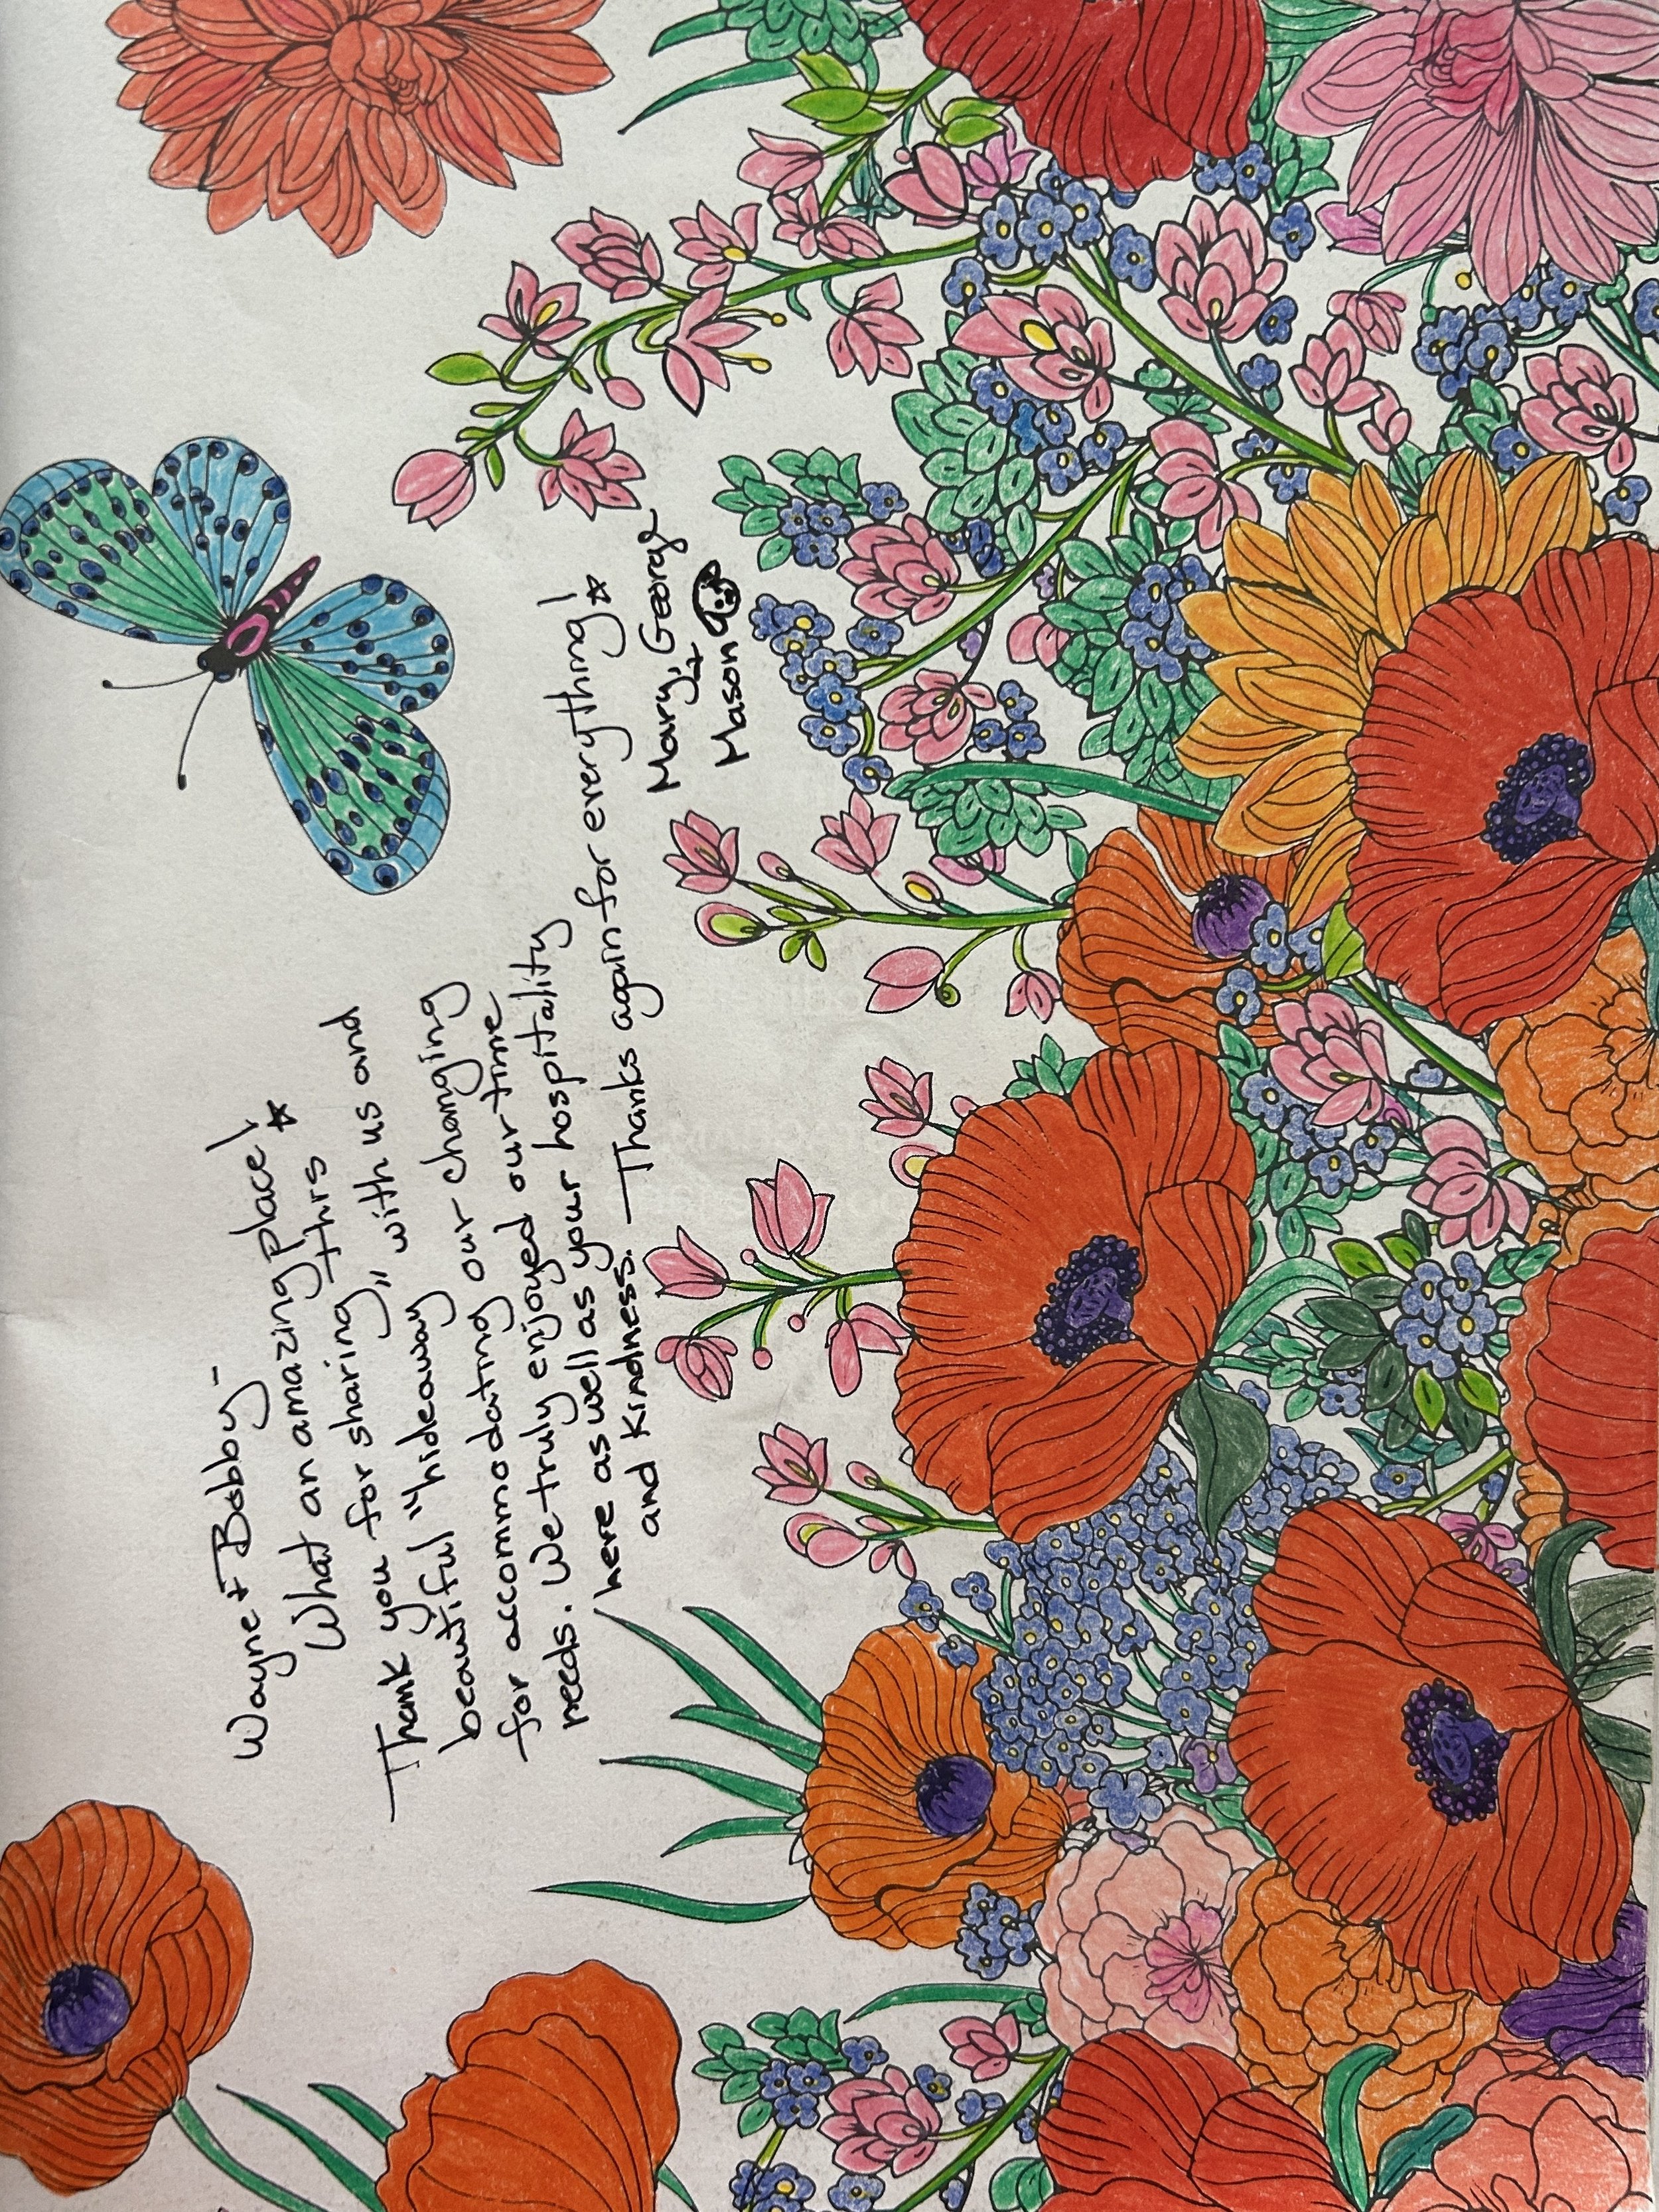 Wayne + Bobby -
What an amazing place! ☆
Thank you for sharing this
beautiful "hideaway" with us and
for accommodating our changing
needs. We truly enjoyed our time
here as well as your hospitality
and kindness. Thanks again for everything! ☆
Mary, George
+
Mason